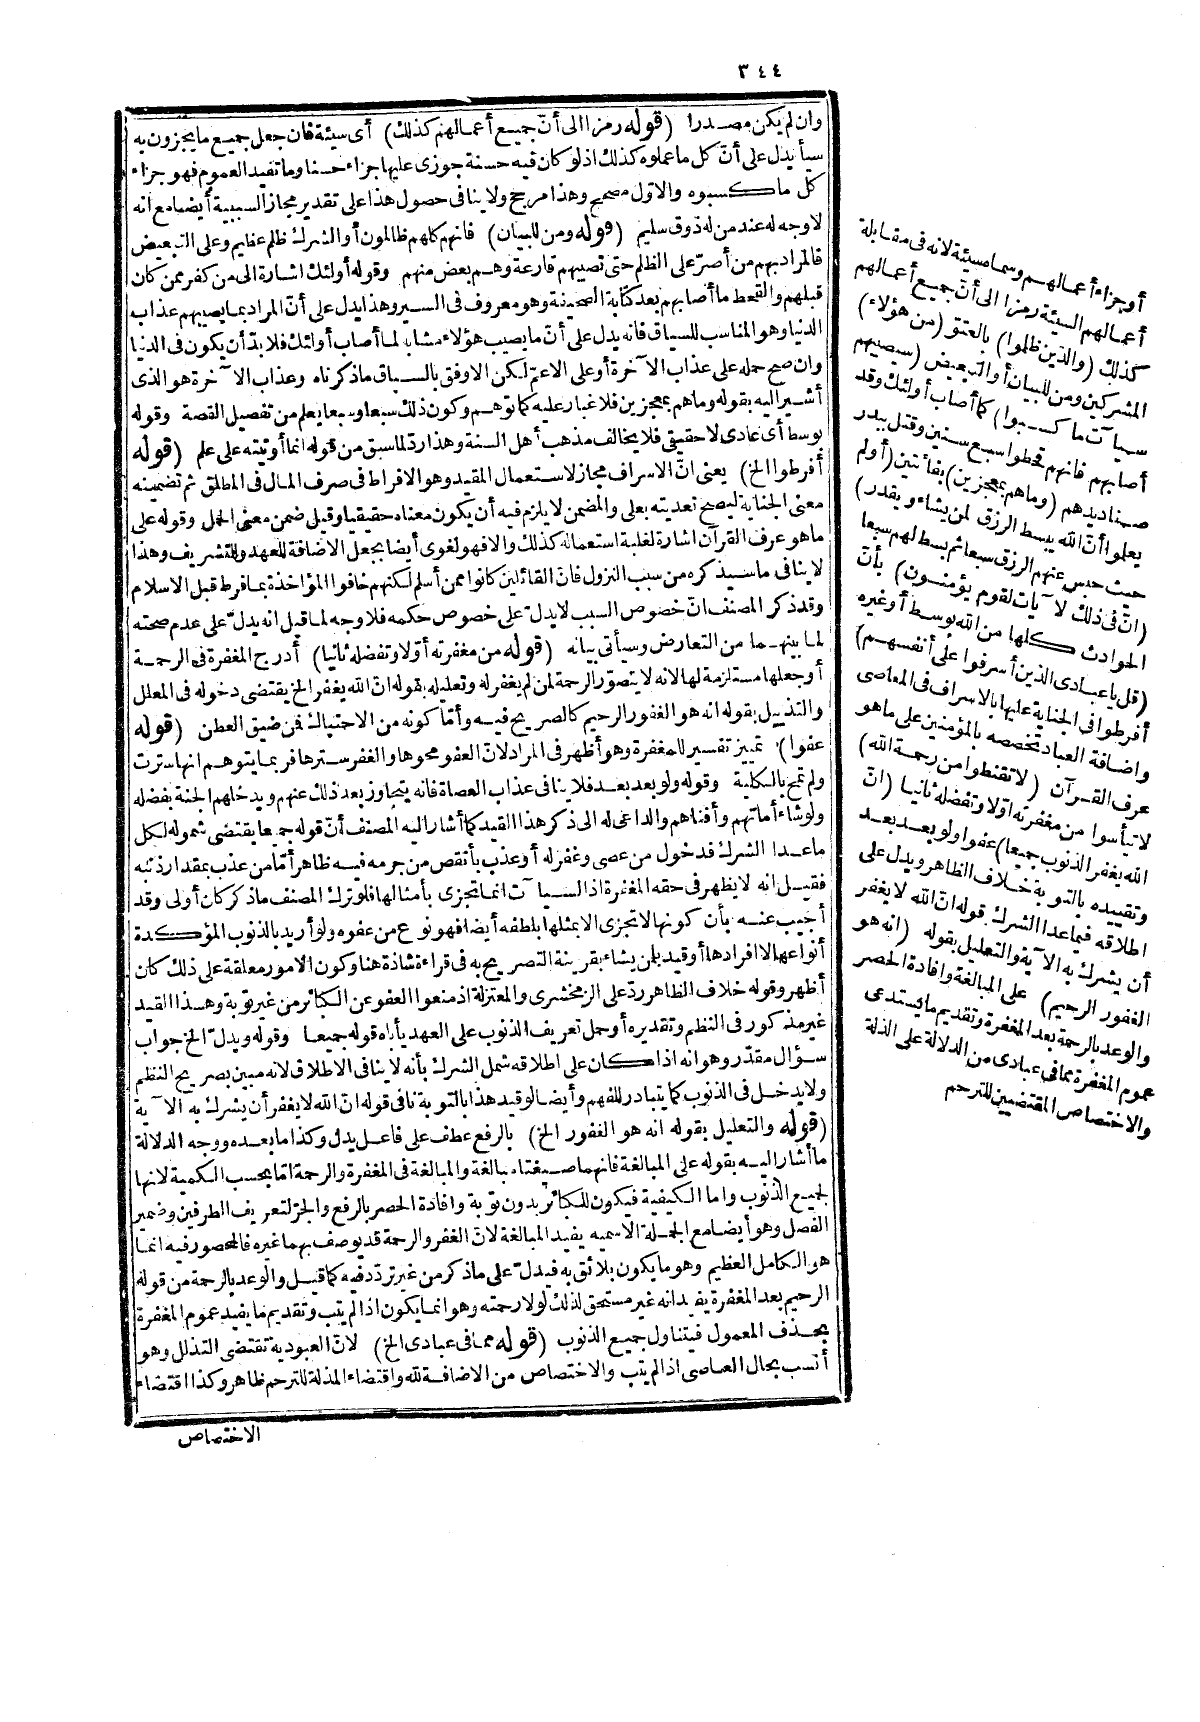 ٣٤٤
وان لم يكن مصدرا (قوله رمزا الى أنّ جميع أعمالهم كذلك) أى سيئة فان جعل جميع ما يجزون به
سيأ يدل على أنّ كل ما عملوه كذلك اذ لو كان فيه حسنة جوزى عليها جزاء حسنا وما تفيد العموم فهو جزاء
كل ما كسبوه والاوّل مصحح وهذا مرجح ولا ينافى حصول هذا على تقدير مجاز السببية أيضا مع انه
لا وجه له عند من له ذوق سليم (قوله ومن للبيان) فانهم كلهم ظالمون أو الشرك ظلم عظيم وعلى التبعيض
فالمراد بهم من أصرّ على الظلم حتى تصيبهم قارعة وهم بعض منهم وقوله أولئك اشارة الى من كفر ممن كان
قبلهم والقحط ما أصابهم بعد كتابة الصحيفة وهو معروف فى السير وهذا يدل على أنّ المراد بما يصيبهم عذاب
الدنيا وهو المناسب للسياق فانه يدل على أنّ ما يصيب هؤلاء مشابه لما أصاب أولئك فلا بدّ أن يكون فى الدنيا
وان صح حمله على عذاب الآخرة أو على الاعم لكن الاوفق بالسياق ما ذكرناه وعذاب الآخرة هو الذى
أشير اليه بقوله وما هم بمعجزين فلا غبار عليه كما توهم وكون ذلك سبعا وسبعا يعلم من تفصيل القصة وقوله
بوسط أى عادى لا حقيقى فلا يخالف مذهب أهل السنة وهذا ردّ لما سبق من قوله انما أوتيته على علم (قوله
أفرطوا الخ) يعنى انّ الاسراف مجاز لاستعمال المقيد وهو الافراط فى صرف المال فى المطلق ثم تضمينه
معنى الجناية ليصح تعديته بعلى والمضمن لا يلزم فيه أن يكون معناه حقيقيا وقيل ضمن معنى الحمل وقوله على
ما هو عرف القرآن اشارة لغلبة استعماله كذلك والا فهو لغوى أيضا بجعل الاضافة للعهد وللتشريف وهذا
لا ينافى ما سيذكره من سبب النزول فانّ القائلين كانوا ممن أسلم لكنهم خافوا المؤاخذة بما فرط قبل الاسلام
وقد ذكر المصنف انّ خصوص السبب لا يدلّ على خصوص حكمه فلا وجه لما قيل انه يدلّ على عدم صحته
لما بينهما من التعارض وسيأتى بيانه (قوله من مغفرته أوّلا وتفضله ثانيا) أدرج المغفرة فى الرحمة
أو جعلها مستلزمة لها لانه لا يتصوّر الرحمة لمن لم يغفر له وتعليله بقوله انّ الله يغفر الخ يقتضى دخوله فى المعلل
والتذييل بقوله انه هو الغفور الرحيم كالصريح فيه وأمّا كونه من الاحتباك فمن ضيق العطن (قوله
عفوا) تمييز تفسير للمغفرة وهو أظهر فى المراد لانّ العفو محوها والغفر سترها فربما يتوهم انها سترت
ولم تمح بالكلية وقوله ولو بعد بعد فلا ينافى عذاب العصاة فانه يتجاوز بعد ذلك عنهم ويدخلهم الجنة بفضله
ولو شاء أماتهم وأفناهم والداعى له الى ذكر هذا القيد كما أشار اليه المصنف أنّ قوله جميعا يقتضى شموله لكل
ما عدا الشرك فدخول من عصى وغفر له أو عذب بأنقص من جرمه فيه ظاهر أمّا من عذب بمقدار ذنبه
فقيل انه لا يظهر فى حقه المغفرة اذ السيآت انما تجزى بأمثالها فلو ترك المصنف ما ذكر كان أولى وقد
أجيب عنه بأن كونها لا تجزى الا بمثلها بلطفه أيضا فهو نوع من عفوه ولو أريد بالذنوب المؤكدة
أنواعها لا افرادها أو قيد بلمن يشاء بقرينة التصريح به فى قراءة شاذة هنا وكون الامور معلقة على ذلك كان
أظهر وقوله خلاف الظاهر ردّ على الزمخشرى والمعتزلة اذ منعوا العفو عن الكبائر من غير توبة وهذا القيد
غير مذكور فى النظم وتقديره أو حمل تعريف الذنوب على العهد يأباه قوله جميعا وقوله ويدلّ الخ جواب
سؤال مقدّر وهو انه اذا كان على اطلاقه شمل الشرك بأنه لا ينافى الاطلاق لانه مبين بصريح النظم
ولا يدخل فى الذنوب كما يتبادر للفهم وأيضا لو قيد هذا بالتوبة نافى قوله انّ الله لا يغفر أن يشرك به الآية
(قوله والتعليل بقوله انه هو الغفور الخ) بالرفع عطف على فاعل يدل وكذا ما بعده ووجه الدلالة
ما أشار اليه بقوله على المبالغة فانهما صيغتا مبالغة والمبالغة فى المغفرة والرحمة امّا بحسب الكمية لانها
لجميع الذنوب واما الكيفية فيكون للكبائر بدون توبة وافادة الحصر بالرفع والجرّ لتعريف الطرفين وضمير
الفصل وهو أيضا مع الجملة الاسميه يفيد المبالغة لانّ الغفر والرحمة قد يوصف بهما غيره فالمحصور فيه انما
هو الكامل العظيم وهو ما يكون بلا توبة فيدلّ على ما ذكر من غير تردّد فيه كما قيل والوعد بالرحمة من قوله
الرحيم بعد المغفرة يفيد انه غير مستحق لذلك لولا رحمته وهو انما يكون اذا لم يتب وتقديم ما يفيد عموم المغفرة
بحذف المعمول فيتناول جميع الذنوب (قوله مما فى عبادى الخ) لانّ العبودية تقتضى التذلل وهو
أنسب بحال العاصى اذا لم يتب والاختصاص من الاضافة لله واقتضاء المذلة للترحم ظاهر وكذا اقتضاء
الاختصاص
أو جزاء أعمالهم وسماه سيئة لانه فى مقابلة
أعمالهم السيئة رمزا الى أنّ جميع أعمالهم
كذلك (والذين ظلموا) بالعتوّ (من هؤلاء)
المشركين ومن للبيان أو التبعيض (سيصيبهم
سيآت ما كسبوا) كما أصاب أولئك وقد
أصابهم فانهم قحطوا سبع سنين وقتل ببدر
صناديدهم (وما هم بمعجزين) بفائتين (أولم
يعلموا أنّ الله يبسط الرزق لمن يشاء ويقدر)
حيث حبس عنهم الرزق سبعا ثم بسط لهم سبعا
(انّ فى ذلك لآيات لقوم يؤمنون) بأنّ
الحوادث كلها من الله بوسط أو غيره
(قل يا عبادى الذين أسرفوا على أنفسهم)
أفرطوا فى الجناية عليها بالاسراف فى المعاصى
واضافة العباد تخصصه بالمؤمنين على ما هو
عرف القرآن (لا تقنطوا من رحمة الله)
لا تيأسوا من مغفرته أوّلا وتفضله ثانيا (انّ
الله يغفر الذنوب جميعا) عفوا ولو بعد بعد
وتقييده بالتوبة خلاف الظاهر ويدل على
اطلاقه فيما عدا الشرك قوله انّ الله لا يغفر
أن يشرك به الآية والتعليل بقوله (انه هو
الغفور الرحيم) على المبالغة وافادة الحصر
والوعد بالرحمة بعد المغفرة وتقديم ما يستدعى
عموم المغفرة مما فى عبادى من الدلالة على الذلة
والاختصاص المقتضيين للترحم